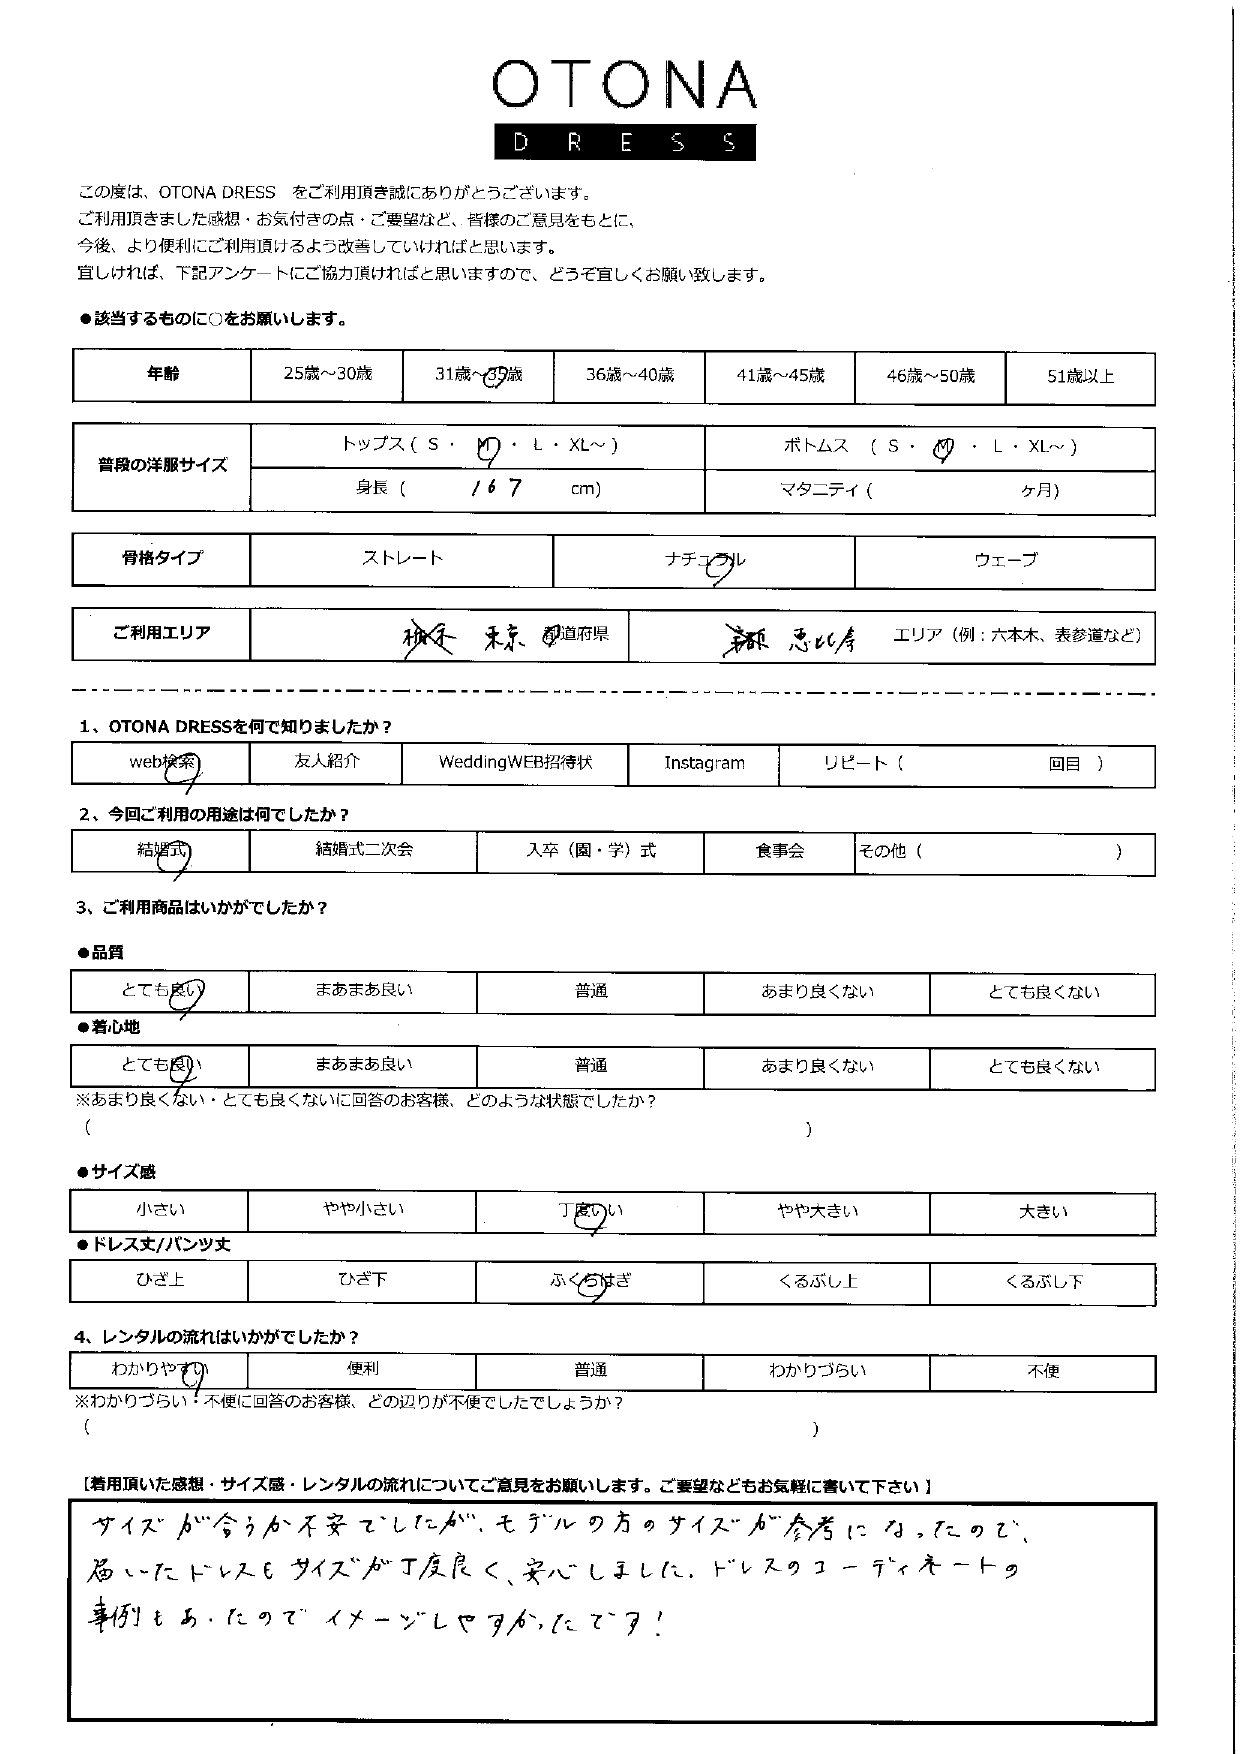 OTONA
DRESS
この度は、OTONA DRESS をご利用頂き誠にありがとうございます。
ご利用頂きました感想・お気付きの点・ご要望など、皆様のご意見をもとに、
今後、より便利にご利用頂けるよう改善していければと思います。
宜しければ、下記アンケートにご協力頂ければと思いますので、どうぞ宜しくお願い致します。
●該当するものに○をお願いします。
年齢 25歳～30歳 31歳～35歳 36歳～40歳 41歳～45歳 46歳～50歳 51歳以上
普段の洋服サイズ トップス ( S ・ M ・ L ・ XL～ ) ボトムス ( S ・ M ・ L ・ XL～ )
身長 ( 167 cm) マタニティ ( ヶ月)
骨格タイプ ストレート ナチュラル ウェーブ
ご利用エリア 東京 都道府県 恵比寿 エリア（例：六本木、表参道など）
1、OTONA DRESSを何で知りましたか？
web検索 友人紹介 WeddingWEB招待状 Instagram リピート（ 回目 ）
2、今回ご利用の用途は何でしたか？
結婚式 結婚式二次会 入卒（園・学）式 食事会 その他（ ）
3、ご利用商品はいかがでしたか？
●品質
とても良い まあまあ良い 普通 あまり良くない とても良くない
●着心地
とても良い まあまあ良い 普通 あまり良くない とても良くない
※あまり良くない・とても良くないに回答のお客様、どのような状態でしたか？
( )
●サイズ感
小さい やや小さい 丁度いい やや大きい 大きい
●ドレス丈/パンツ丈
ひざ上 ひざ下 ふくらはぎ くるぶし上 くるぶし下
4、レンタルの流れはいかがでしたか？
わかりやすい 便利 普通 わかりづらい 不便
※わかりづらい・不便に回答のお客様、どの辺りが不便でしたでしょうか？
( )
【着用頂いた感想・サイズ感・レンタルの流れについてご意見をお願いします。ご要望などもお気軽に書いて下さい】
サイズが合うか不安でしたが、モデルの方のサイズが参考になったので、
届いたドレスもサイズが丁度良く、安心しました。ドレスのコーディネートの
事例もあったのでイメージしやすかったです！